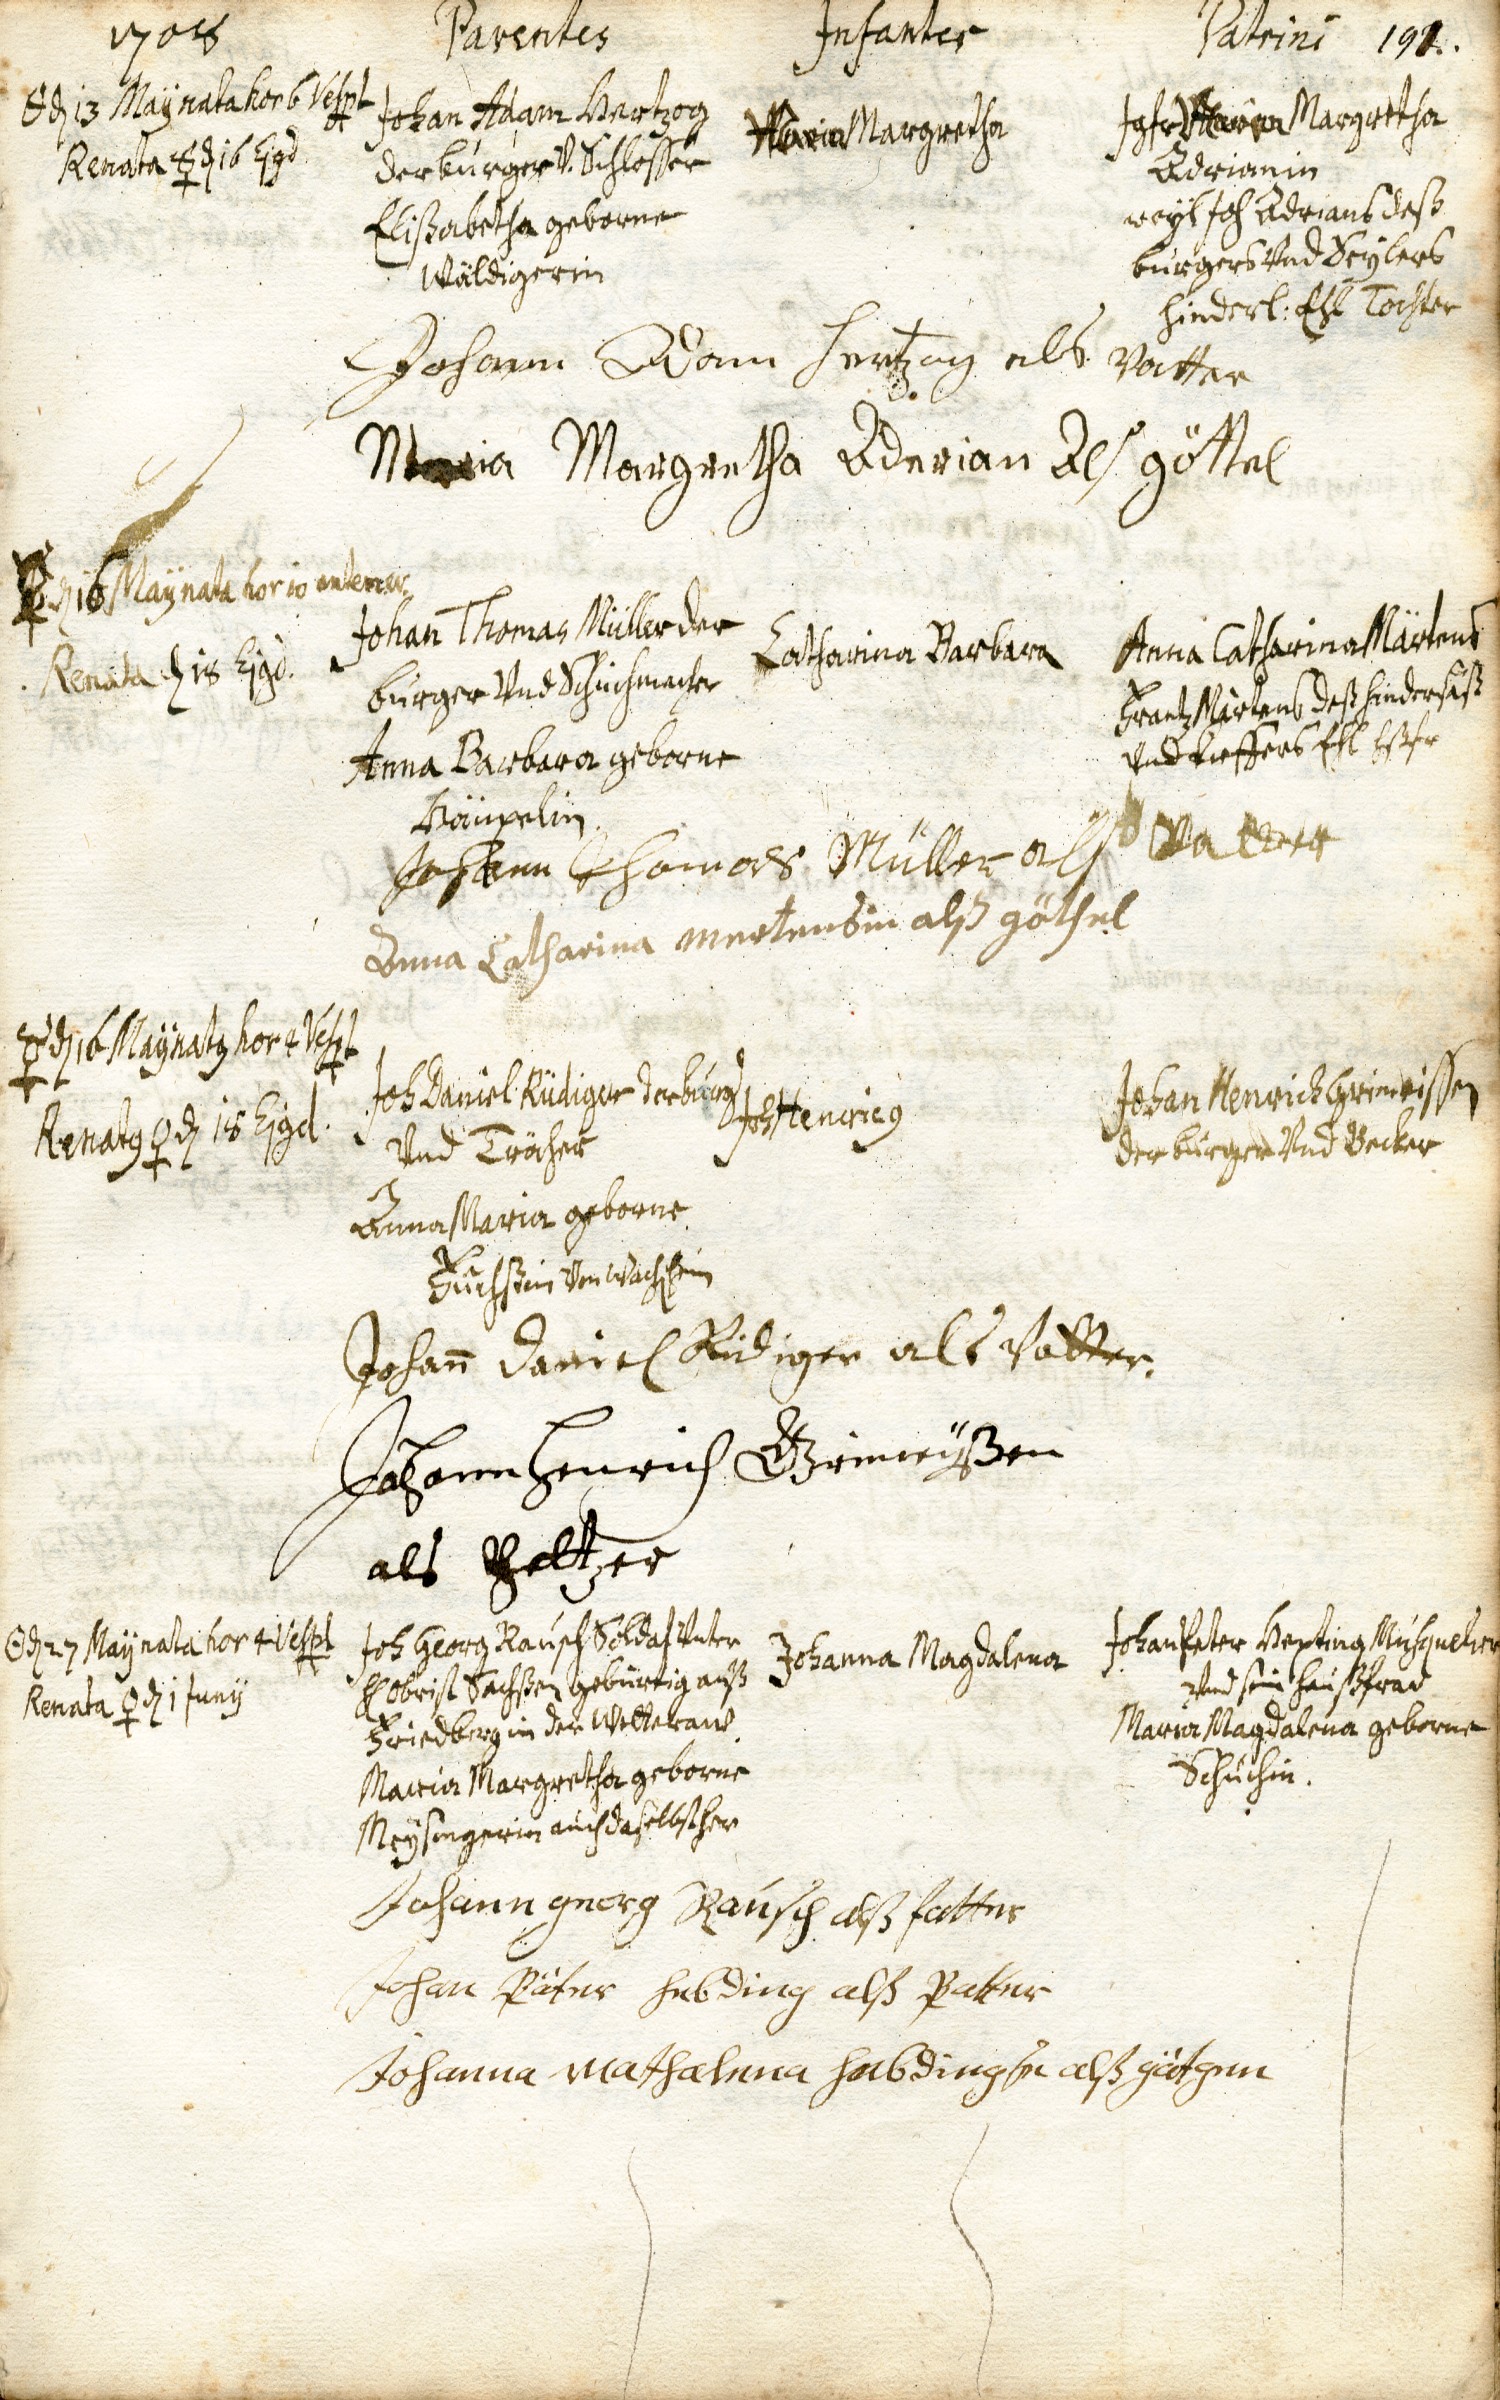 1708 Parentes Infantes Patrini 191.
d 13 Maÿ nata hor 6 Vespt
Renata ☿ d 16 Ejgd
Johan Adam Hertzog
der burger V. Schlosser
Elisabetha geborne
Wäldigerin
Maria Margretha
Jgfr Maria Margretha
Adrianin
weyl Joh Adrians deß
burgers Vnd Seylers
hinderl: Ehl Tochter
Johann Adam Hertzog als Vatter
Maria Margretha Aderian Als göttel
d 16 Maÿ nata hor 10 antem.
Renata d 18 Ejgd.
Johan Thomas Müller der
burger Vnd Schuchmacher
Anna Barbara geborne
Catharina Barbara
Anna Catharina Märtens
Frantz Märtens deß hindersäß
Vnd Kieffers Ehl hßfr
Johann Thomas Müller alß Vatter
Anna Catharina mertensin alß göthel
☿ d 16 Maÿ nat9 hor 4 Vespt
Renat9 ♀ d 18 Ejgd.
Joh Daniel Rüdiger der burg
Vnd Träher
Anna Maria geborne
Fuchßin Von
Joh Henric9
Johan Henrich Grimeissen
der burger Vnd Becker
Johañ Daniel Rüdiger als Vatter.
Johann Henrich Grimeÿßen
als Pfettzer
☉ d 27 Maÿ nata hor 4 Vespt
Renata ♀ d 1 Juny
Joh Georg Rausch Soldat Vnter
H Obrist Sachßen gebürtig auß
Friedberg in der Wetteraw
Maria Margretha geborne
Meysingerin auch daselbst her
Johanna Magdalena
Johan Peter Hepting Musquetier
Vnd sein haußfraw
Maria Magdalena geborne
Schuchin.
Johann georg Rausch alß fatter
Johan Päter hebding alß Patter
Johanna Mathalena hebdingin alß götgen